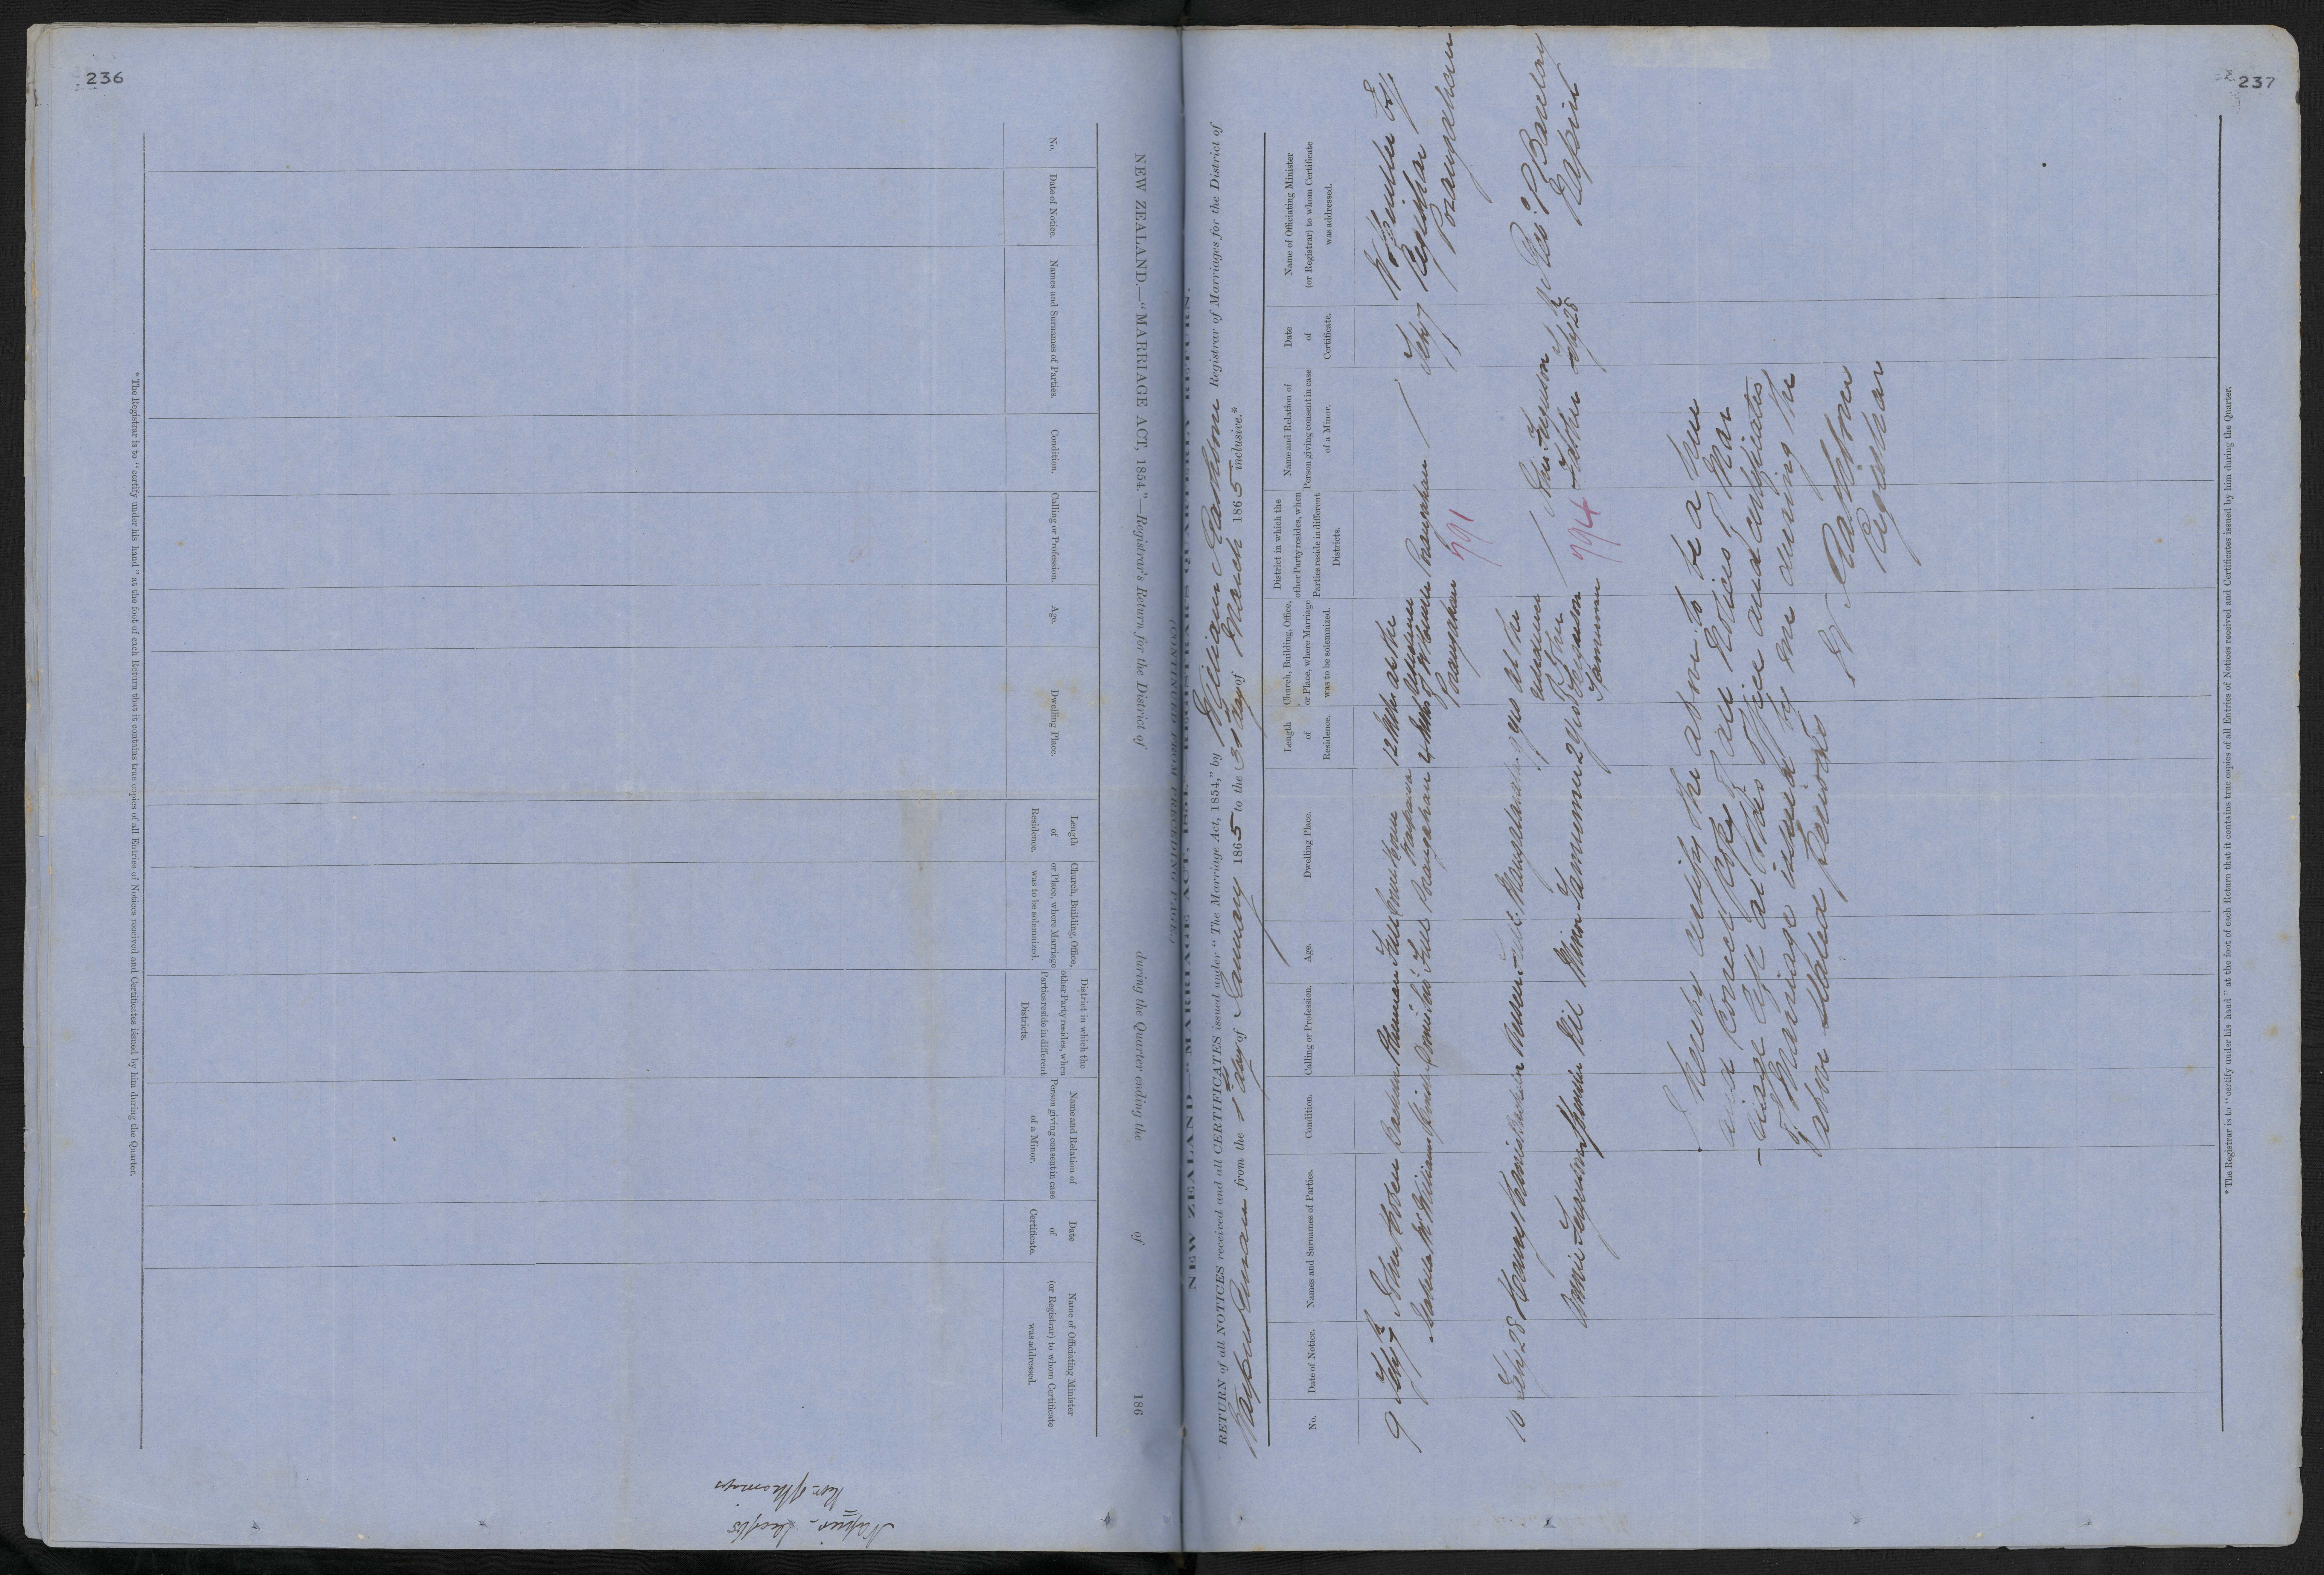 236
No.
Date of Notice.
Names and Surnames of Parties.
Condition.
Calling or Profession.
Age.
Dwelling Place.
Length of Residence.
Church, Building, Office, or Place, where Marriage was to be solemnized.
District in which the other Party resides, when Parties reside in different Districts.
Name and Relation of Person giving consent in case of a Minor.
Date of Certificate.
Name of Officiating Minister (or Registrar) to whom Certificate was addressed.
NEW ZEALAND.—"MARRIAGE ACT, 1854."—Registrar's Return for the District of during the Quarter ending the of 186
(CONTINUED FROM PRECEDING PAGE.)
* The Registrar is to "certify under his hand" at the foot of each Return that it contains true copies of all Entries of Notices received and Certificates issued by him during the Quarter.
237
NEW ZEALAND—"MARRIAGE ACT, 1854."—REGISTRAR'S QUARTERLY RETURN.
RETURN of all NOTICES received and all CERTIFICATES issued under "The Marriage Act, 1854," by William Registrar of Marriages for the District of
from the 1st day of January 1865 to the 31 day of March 1865 inclusive.*
No.
Date of Notice.
Names and Surnames of Parties.
Condition.
Calling or Profession.
Age.
Dwelling Place.
Length of Residence.
Church, Building, Office, or Place, where Marriage was to be solemnized.
District in which the other Party resides, when Parties reside in different Districts.
Name and Relation of Person giving consent in case of a Minor.
Date of Certificate.
Name of Officiating Minister (or Registrar) to whom Certificate was addressed.
9 Feby 7th John Bachelor Full 12 Mths at the Feby 7 Esqr
Isabella McWilliam Spinster Domestic Full Porangahau 4 Mths Residence Porangahau Registrar
Porangahau Porangahau
991
10 Feby 28 Henry Bachelor Full 9 yrs at the residence John Ferguson Revd P Barclay
Annie Ferguson Spinster Nil Minor Tamumu 2 yrs Ferguson Father Feby 28th Napier
Tamumu
994
I hereby certify the above to be a true
and correct copy of all Notices of Mar
-riage left at this Office and certificates
of Marriage issued by me during the
above stated periods
Registrar
* The Registrar is to "certify under his hand" at the foot of each Return that it contains true copies of all Entries of Notices received and Certificates issued by him during the Quarter.